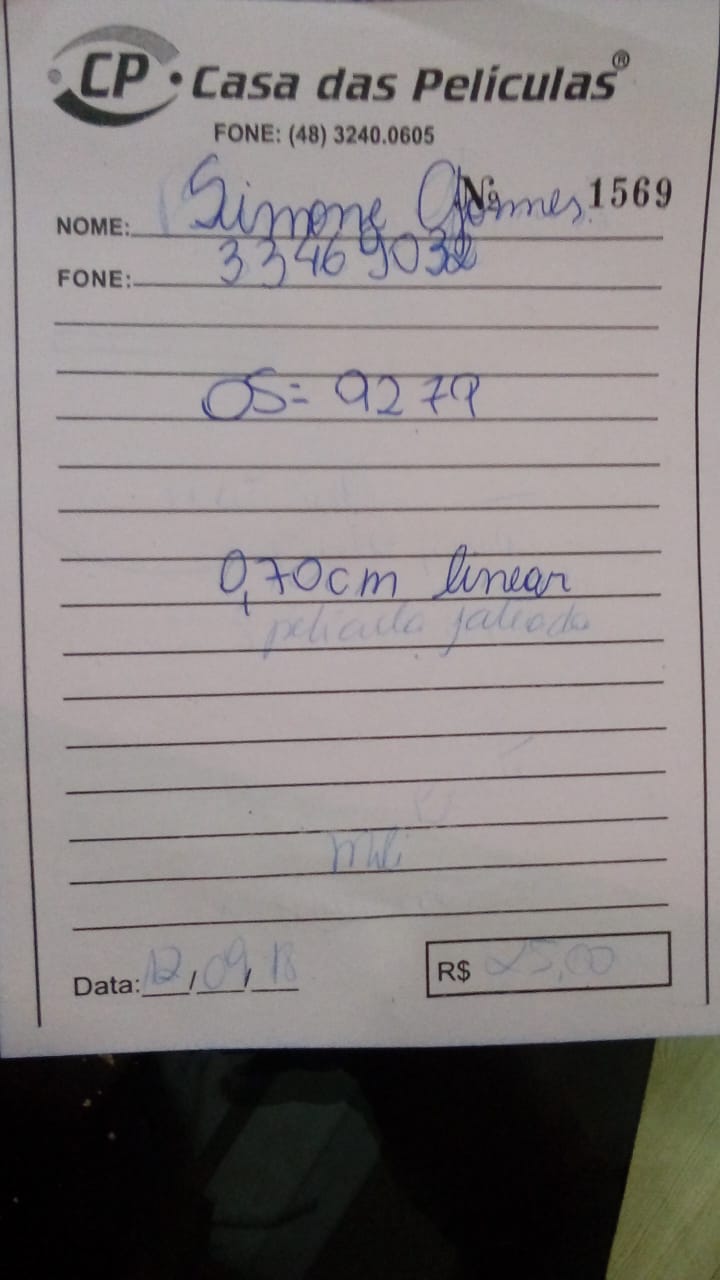 CP • Casa das Películas®
FONE: (48) 3240.0605
Nº 1569
NOME: Simone Gomes
FONE: 33469032
OS= 9279
0,70cm linear
jateada
Data: 12/09/18
R$ 25,00